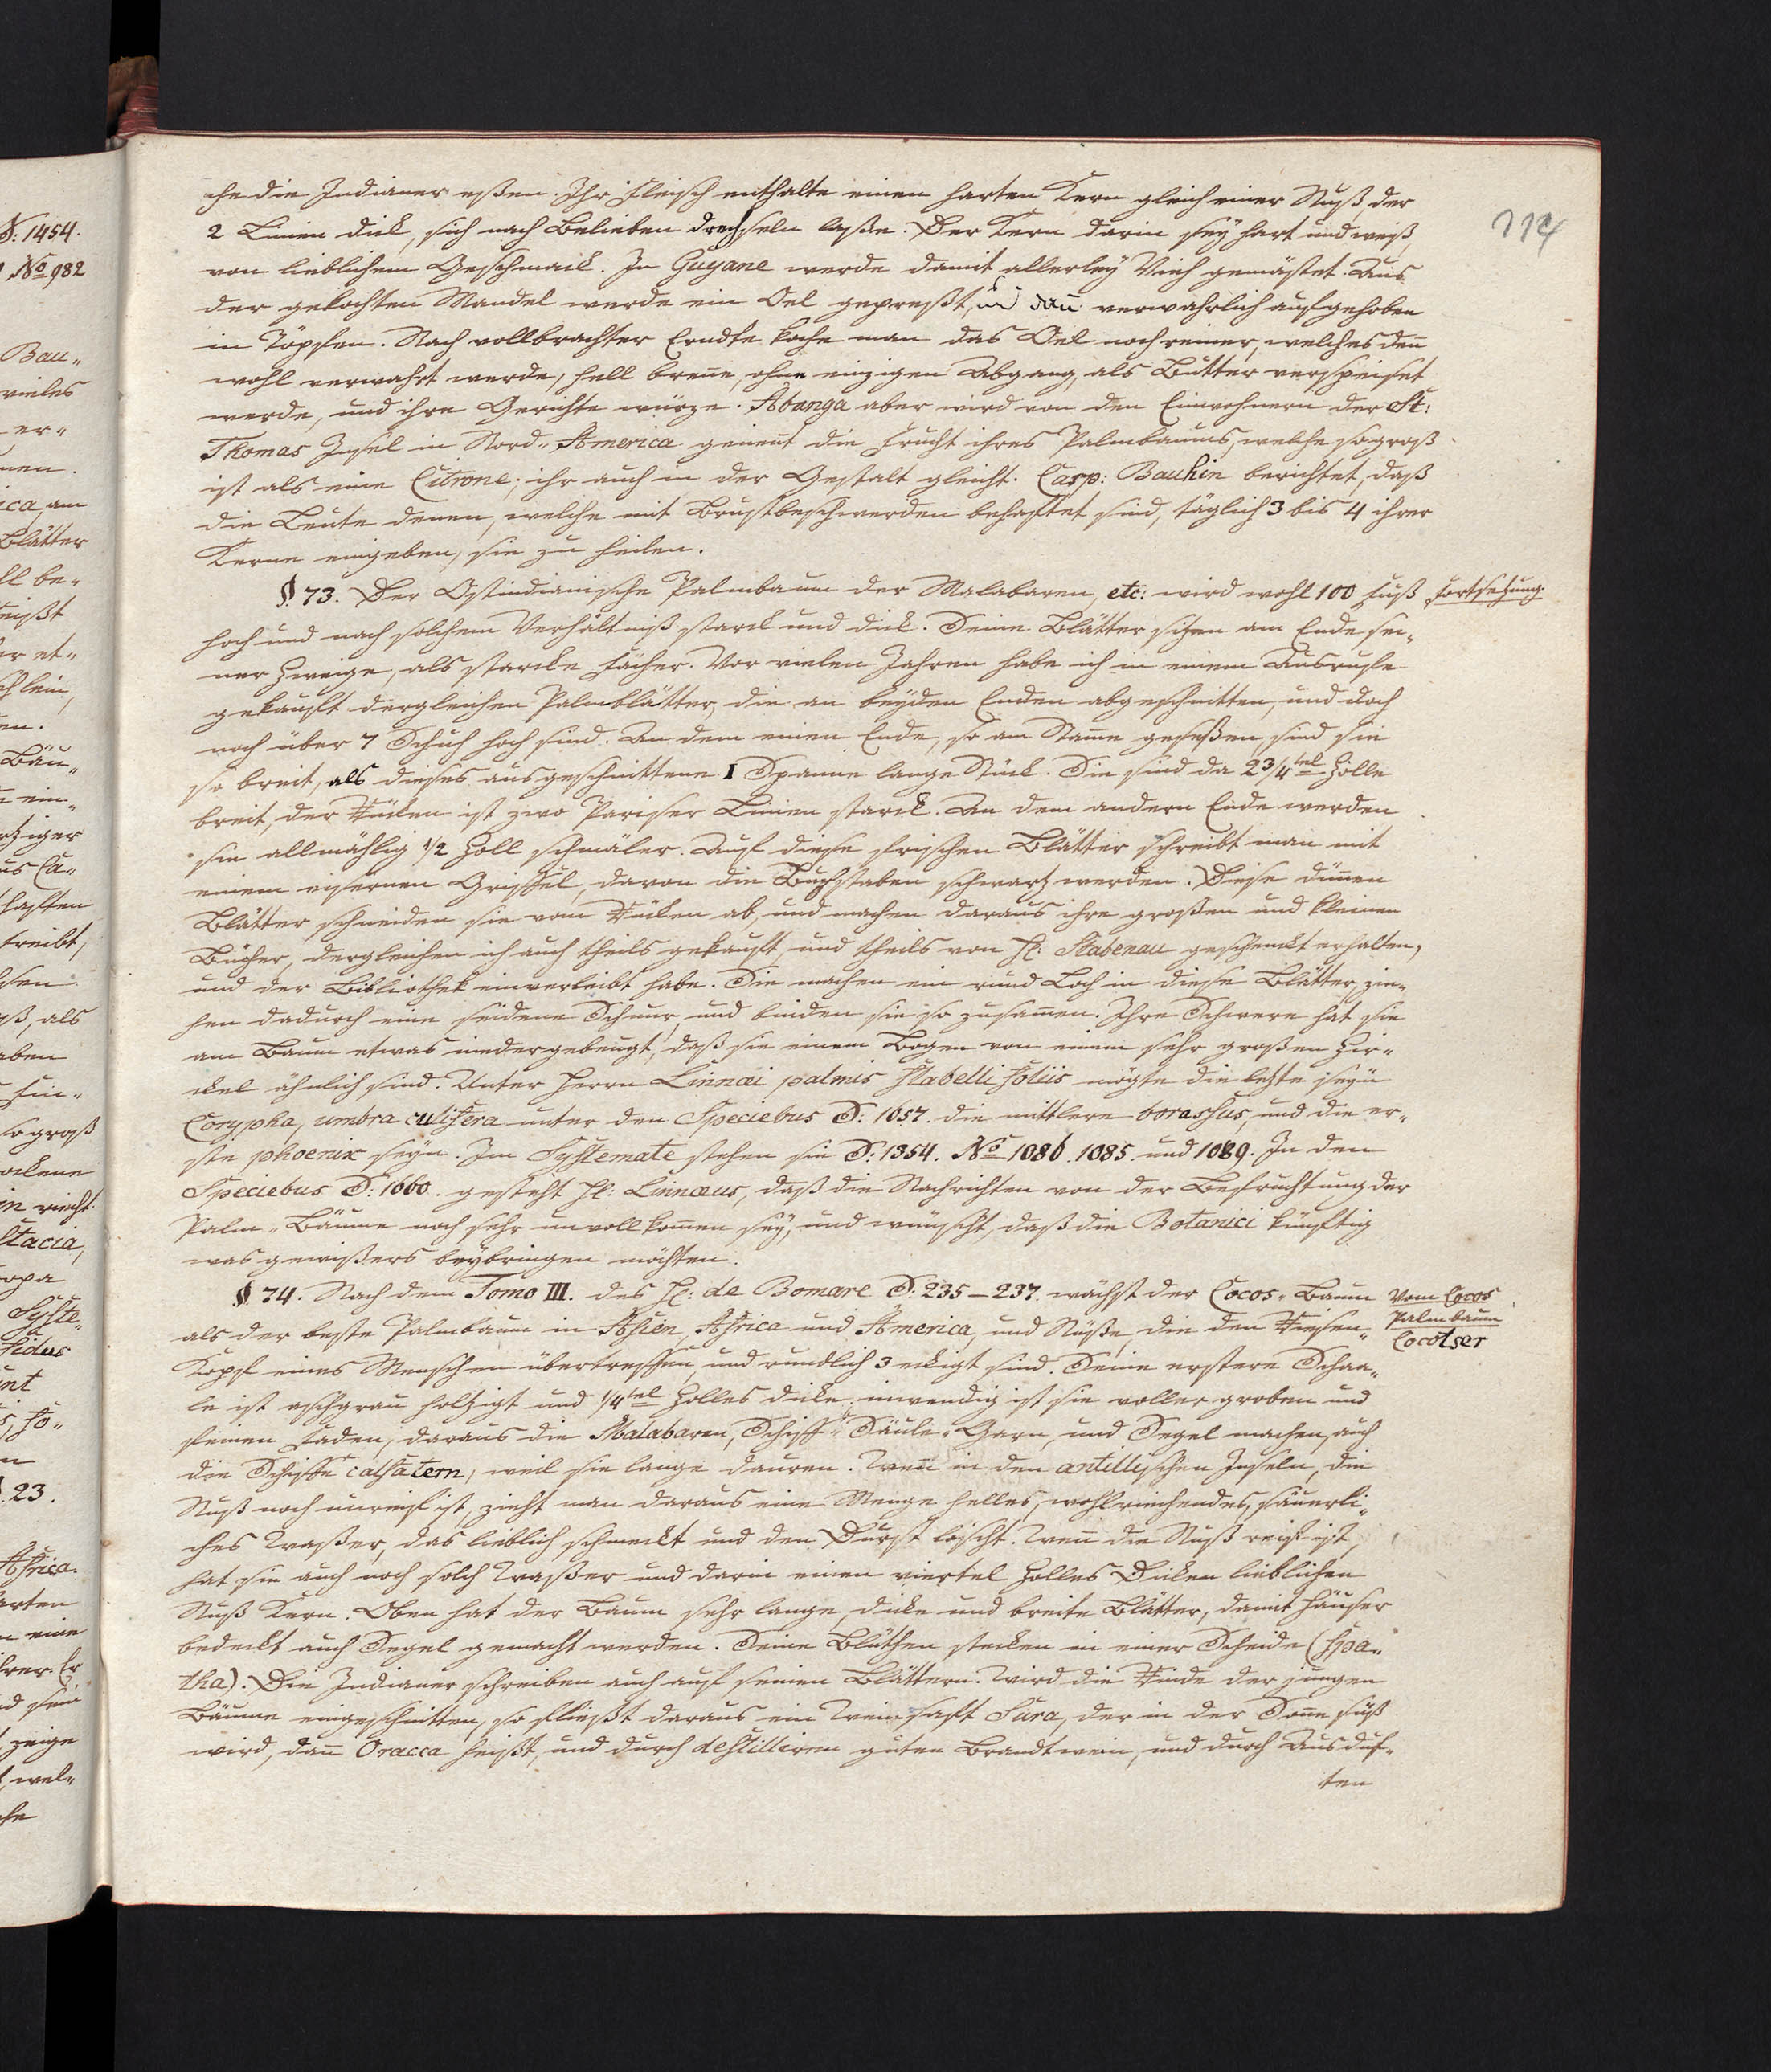 114
che die Indianer eßen. Ihr Fleisch enthalte einen harten Kern gleich einer Nuß, der
2 Linien dick, sich nach Belieben drechseln laße. Der Kern darin sey hart und weiß
von lieblichem Geschmack. In Guyane werde damit allerley Vieh gemästet. Aus
der gekochten Mandel werde ein Oel gepreßt, und dan verwahrlich aufgehoben
in Töpfen. Nach vollbrachter Erndte koche man das Oel noch reiner, welches den
wohl verwahrt werde, hell breñe, ohne einzigen Abgang, als Butter verspeiset
werde, und ihre Gerichte würze. Abanga aber wird von den Einwohnern der St:
Thomas Insel in Nord-America genent die Frucht ihres Palmbaums, welche so groß
ist als eine Citrone, ihr auch in der Gestalt gleicht. Casp: Bauhin berichtet, daß
die Leute denen, welche mit Brustbeschwerden behaftet sind, täglich 3 bis 4 ihrer
Kerne eingeben, sie zu heilen.
§. 73. Der Ostindianische Palmbaum der Malabaren, etc: wird wohl 100 Fuß
Fortsetzung.
hoch und nach solchem Verhältniß starck und dick. Seine Blätter sitzen am Ende sei-
ner Zweige, als starcke Fächer. Vor vielen Jahren habe ich in einem Ausrufe
gekauft dergleichen Palmblätter, die an beyden Enden abgeschnitten, und doch
noch über 7 Schuh hoch sind. An dem einen Ende, so am Stame geseßen, sind sie
so breit, als dieses ausgeschnittene 1 Spanne lange Stück. Sie sind da 2 3/4tel Zolle
breit, der Rücken ist zwo Pariser Linien starck. An dem andern Ende werden
sie allmählig 1/2 Zoll schmäler. Auf diese frischen Blätter schreibt man mit
einem eisernen Griffel, davon die Buchstaben schwartz werden. Diese dünen
Blätter schneiden sie vom Rücken ab, und machen daraus ihre großen und kleinen
Bücher, dergleichen ich auch theils gekauft, und theils von H: Stabenau geschenckt erhalten,
und der Bibliothek einverleibt habe. Sie machen ein rund Loch in diese Blätter, zie-
hen dadurch eine seidene Schnur, und binden sie so zusamen. Ihre Schwere hat sie
am Baum etwas niedergebeugt, daß sie einem Bogen von einem sehr großen Zir-
ckel ähnlich sind. Unter Herrn Linnæi palmis flabelli foliis mögte die letzte seyn
Corypha, umbra culifera unter den Speciebus S: 1657. die mittlere borassus, und die er-
ste phoenix seyn. Im Systemate stehen sie S: 1354. No 1086. 1085. und 1089. In den
Speciebus S: 1660. gesteht H: Linnæus, daß die Nachrichten von der Befruchtung der
Palm-Bäume noch sehr unvollkomen sey, und wünscht, daß die Botanici künftig
was gewißers beybringen möchten.
§. 74. Nach dem Tomo III. des H: de Bomare S: 235-237. wächst der Cocos-Baum
Vom Cocos
Palmbaum
Cocotser
als der beste Palmbaum in Asien, Africa und America, und Nüße, die den Riesen-
Kopf eines Menschen übertreffen, und rundlich 3 eckigt sind. Seine erstere Schaa-
le ist aschgrau holtzigt und 1/4tel Zolles dicke, inwendig ist sie voller groben und
feinen Faden, daraus die Malabaren, Schiff-Säule-Garn, und Segel machen, auch
die Schiffe calfatern, weil sie lange dauren. Weñ in den antillischen Inseln, die
Nuß noch unreif ist, zieht man daraus eine Menge helles, wohlriechendes, säuerli-
ches Waßer, das lieblich schmeckt und den Durst löscht. Weñ die Nuß reif ist,
hat sie auch noch solch Waßer und darin einen viertel Zolles Dicken lieblichen
Nuß Kern. Oben hat der Baum sehr lange, dicke und breite Blätter, damit Häuser
bedeckt auch Segel gemacht werden. Seine Blüthen stecken in einer Scheide (spa-
tha). Die Indianer schreiben auch auf seinen Blättern. Wird die Rinde der jungen
Bäume eingeschnitten, so fließt daraus ein Weinsaft Sura, der in der Soñe süß
wird, dañ Oracca heißt, und durch destilliren guten Brandtwein, und durch Ausduf-
ten